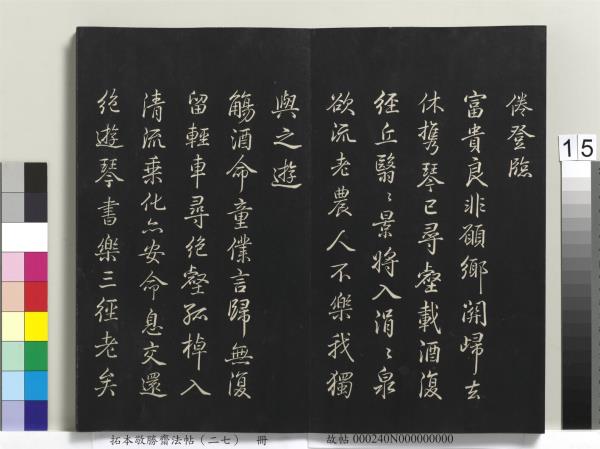 倦登臨
富貴良非願鄉關歸去
休携琴已尋壑載酒復
經丘翳〻景將入涓〻泉
欲流老農人不樂我獨
與之遊
觴酒命童僕言歸無復
留輕車尋絕壑孤棹入
清流乘化亦安命息交還
絕遊琴書樂三徑老矣
15
拓本敬勝齋法帖(二七) 冊
故帖 000240N000000000